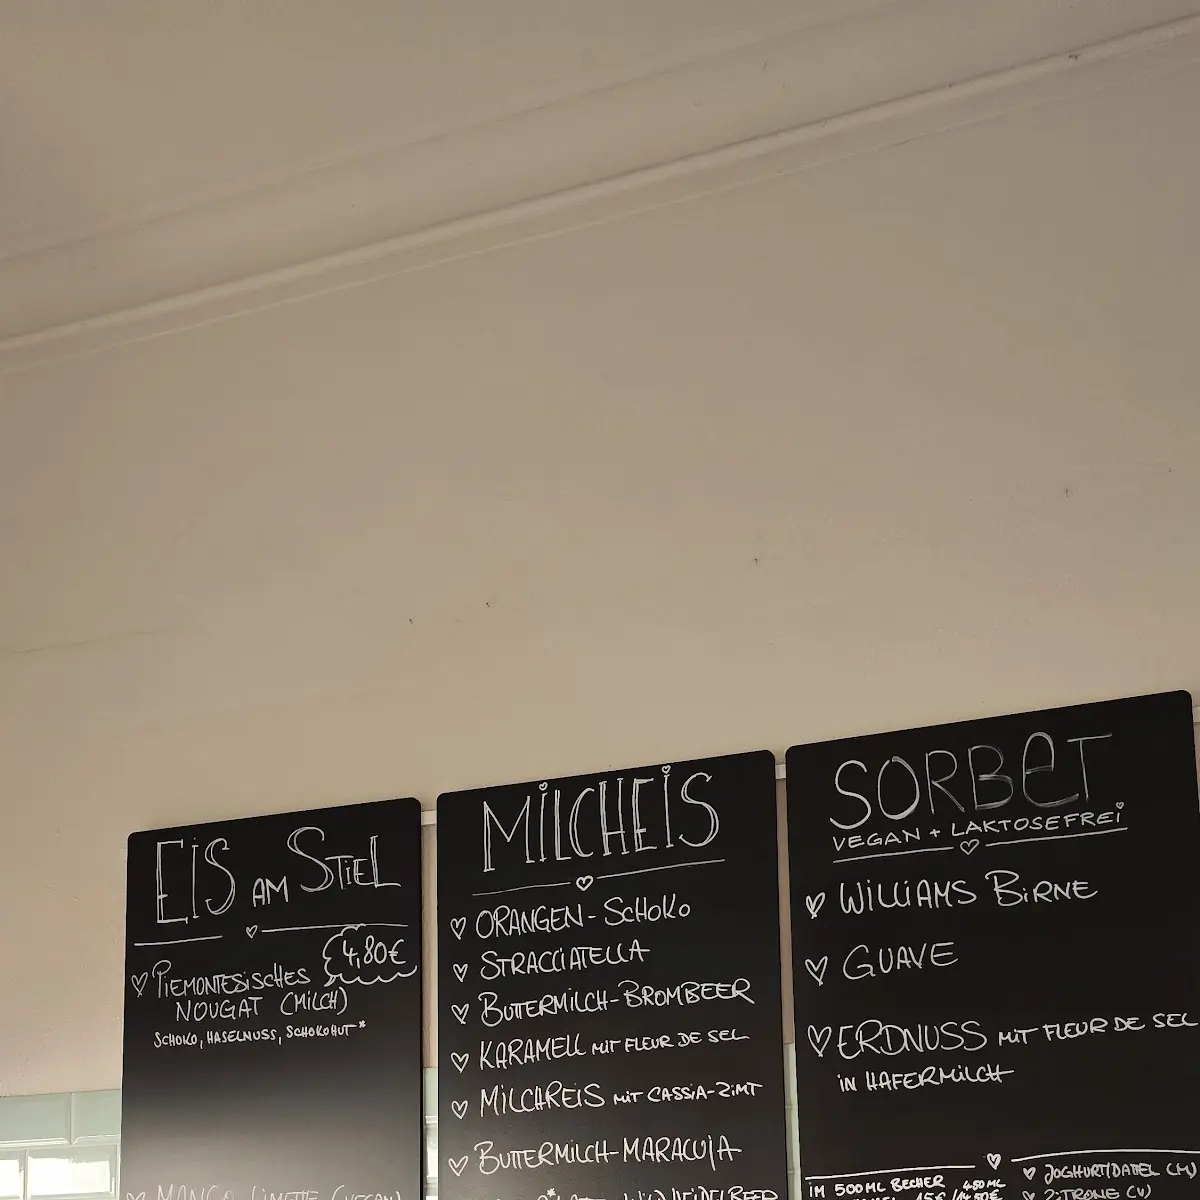 EIS AM STIEL
4,80€
PIEMONTESISCHES
NOUGAT (MILCH)
SCHOKO, HASELNUSS, SCHOKOHUT*
MANGO LIMETTE (VEGAN)
MILCHEIS
ORANGEN-SCHOKO
STRACCIATELLA
BUTTERMILCH-BROMBEER
KARAMELL MIT FLEUR DE SEL
MILCHREIS MIT CASSIA-ZIMT
BUTTERMILCH-MARACUJA
WILDHEIDELBEER
SORBET
VEGAN + LAKTOSEFREI
WILLIAMS BIRNE
GUAVE
ERDNUSS MIT FLEUR DE SEL
IN HAFERMILCH
IM 500ML BECHER 450ML
15€/14,50€
JOGHURT/DATTEL (M)
ZITRONE (V)